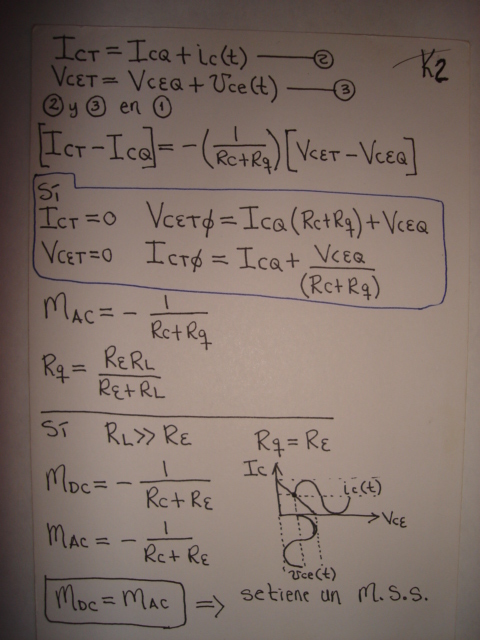 K2
ICT = ICQ + ic(t) ——— ②
VCET = VCEQ + vce(t) ——— ③
② y ③ en ①
[ICT - ICQ] = -(1/(RC+Rq)) [VCET - VCEQ]
Sí
ICT = 0 VCETφ = ICQ (RC+Rq) + VCEQ
VCET = 0 ICTφ = ICQ + VCEQ/(RC+Rq)
MAC = - 1/(RC+Rq)
Rq = RERL/(RE+RL)
Sí RL >> RE Rq = RE
MDC = - 1/(RC+RE)
MAC = - 1/(RC+RE)
IC
ic(t)
VCE
vce(t)
MDC = MAC ⇒ se tiene un M.S.S.